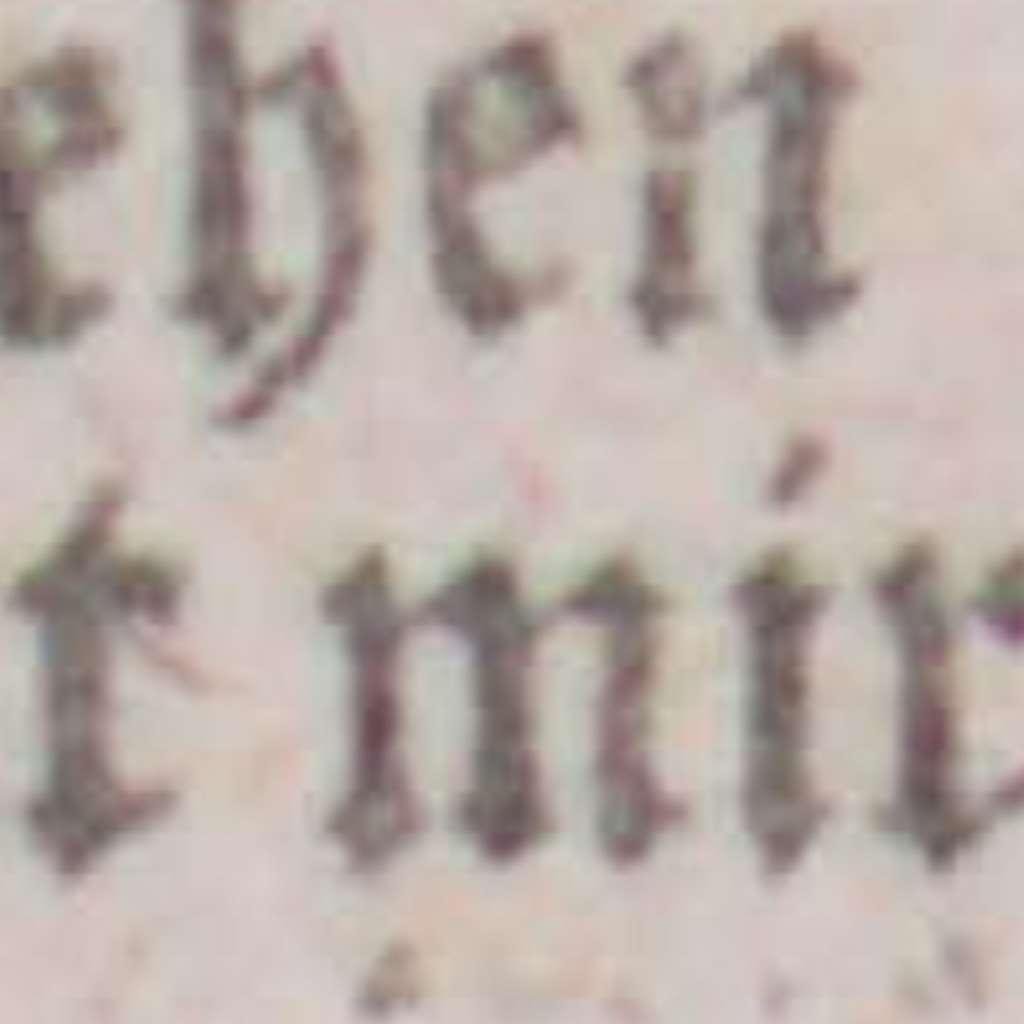 ehen
t mir